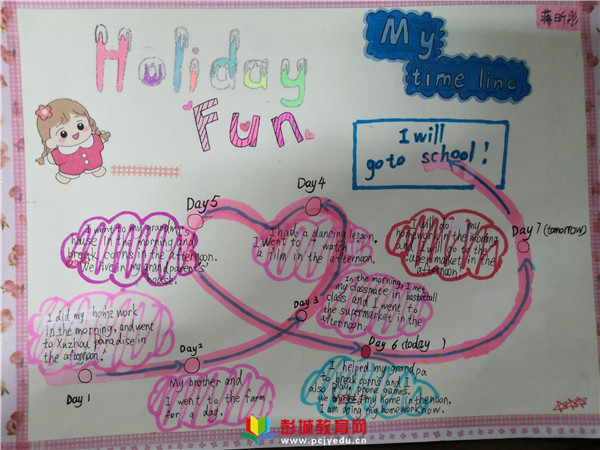 蒋昕彤
Holiday
Fun
My
time line
I will
go to school!
Day 5
Day 4
I went to my grandma's
house in the morning and
break corns in the afternoon.
We live in my grandparent's
house.
I had a dancing lesson.
I went to watch
a film in the afternoon.
I will go my
homework in the morning
and I will go to the
supermarket in the
afternoon.
Day 7 (tomorrow)
In the morning, I met
my classmate in basketball
class and I went to
the supermarket in the
afternoon.
I did my homework
in the morning, and went
to Xuzhou paradise in
the afternoon.
Day 3
Day 6 (today )
Day 2
Day 1
My brother and
I went to the farm
for a day.
I helped my grandpa
to break corns and I
also play phone games.
we my home in the noon.
I am doing my homework now.
彭城教育网
www.pcjyedu.cn